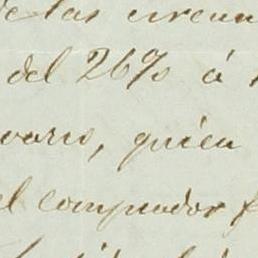 de las circun
del 26% á
vario, quien
el comprador